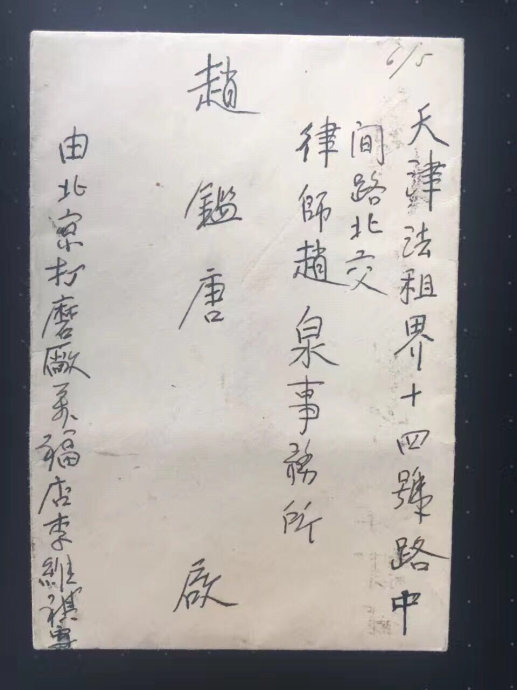 6/5
天津法租界十四號路中
間路北交
律師趙泉事務所
趙鑑唐 啟
由北京打磨廠萬福店李維祺寄